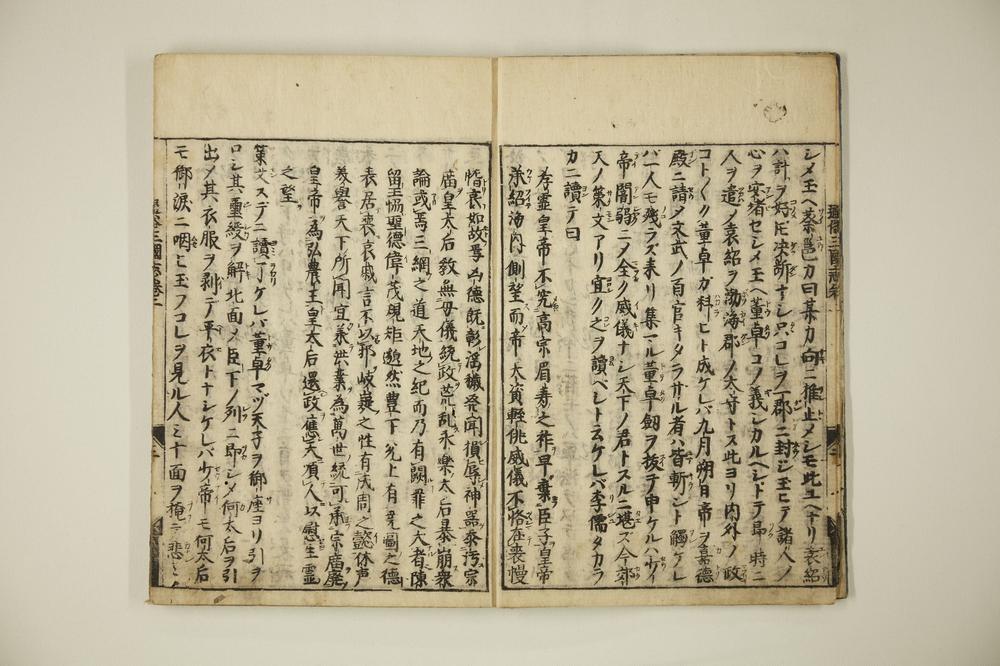 シメ玉ヘ蔡邕カ曰某カ向ニ推止メシモ此ユヘナリ袁紹
ハ計ヲ好𪜈决断ナシ只コレヲ一郡ニ封ジ玉ヒテ諸人ノ
心ヲ安緒セシメ玉ヘ董卓コノ義シカルヘシトテ即時ニ
人ヲ遣ノ袁紹ヲ渤海郡ノ太守トス此ヨリ内外ノ政
コト〱ク董卓ガ科ヒト成ケレバ九月朔日帝ヲ嘉德
殿ニ請メ文武ノ百官キタラサル者ハ皆斬ント觸ケレ
バ一人モ殘ラズ来リ集マル董卓劔ヲ抜テ申ケルハ今ノ
帝闇弱ニメ全ク威儀ナシ天下ノ君トスルニ堪ズ今郊
天ノ策文アリ宜クヲ讀ベシト云ケレバ李儒タカラ
カニ讀テ曰
孝靈皇帝不究高宗眉寿之祚早棄臣子皇帝
承紹海内側望而帝天資輕佻威儀不恪在喪慢
惰衰如故焉凶德既彰淫穢発聞損辱神器忝污宗
廟皇太后敎無母儀統政荒乱永樂太后暴崩衆
論惑焉三綱之道天地之紀而乃有闕罪之大者陳
留王協聖德偉茂規矩邈然豊下兊上有堯圖之德
表居喪哀戚言不以邪岐嶷之性有成周之懿休声
美譽天下所聞宜承洪業為萬世統可承宗廟廢
皇帝為弘農王皇太后還政應天順人以慰生靈
之望
策文スデニ讀了ケレバ董卓マヅ天子ヲ御座ヨリ引ヲ
ロシ其璽綬ヲ解北面メ臣下ノ列ニ即シメ何太后ヲ引
出メ其衣服ヲ剥テ平衣トナシケレバ少帝モ何太后
モ御涙ニ咽ヒ玉フコレヲ見ル人ミナ面ヲ掩テ悲ミ